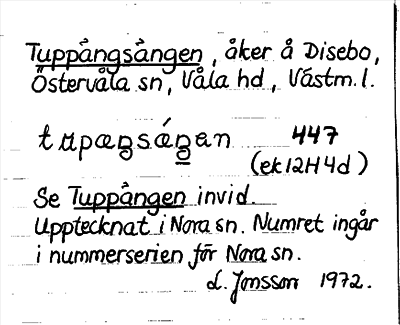 Tuppångsången, åker å Disebo,
Östervåla sn, Våla hd, Västm.l.
447
(ek 12H 4d)
Se Tuppången invid.
Upptecknat i Nora sn. Numret ingår
i nummerserien för Nora sn.
L. Jonsson 1972.